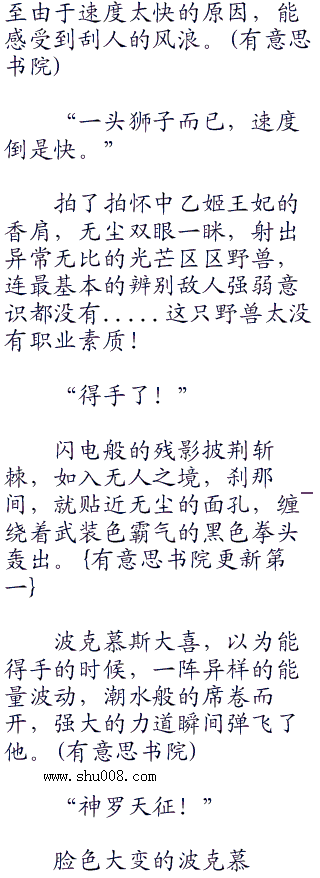 至由于速度太快的原因，能
感受到刮人的风浪。(有意思
书院)
“一头狮子而已，速度
倒是快。”
拍了拍怀中乙姬王妃的
香肩，无尘双眼一眯，射出
异常无比的光芒区区野兽，
连最基本的辨别敌人强弱意
识都没有.....这只野兽太没
有职业素质！
“得手了！”
闪电般的残影披荆斩
棘，如入无人之境，刹那
间，就贴近无尘的面孔，缠
绕着武装色霸气的黑色拳头
轰出。{有意思书院更新第
一}
波克慕斯大喜，以为能
得手的时候，一阵异样的能
量波动，潮水般的席卷而
开，强大的力道瞬间弹飞了
他。(有意思书院)
www.shu008.com
“神罗天征！”
脸色大变的波克慕